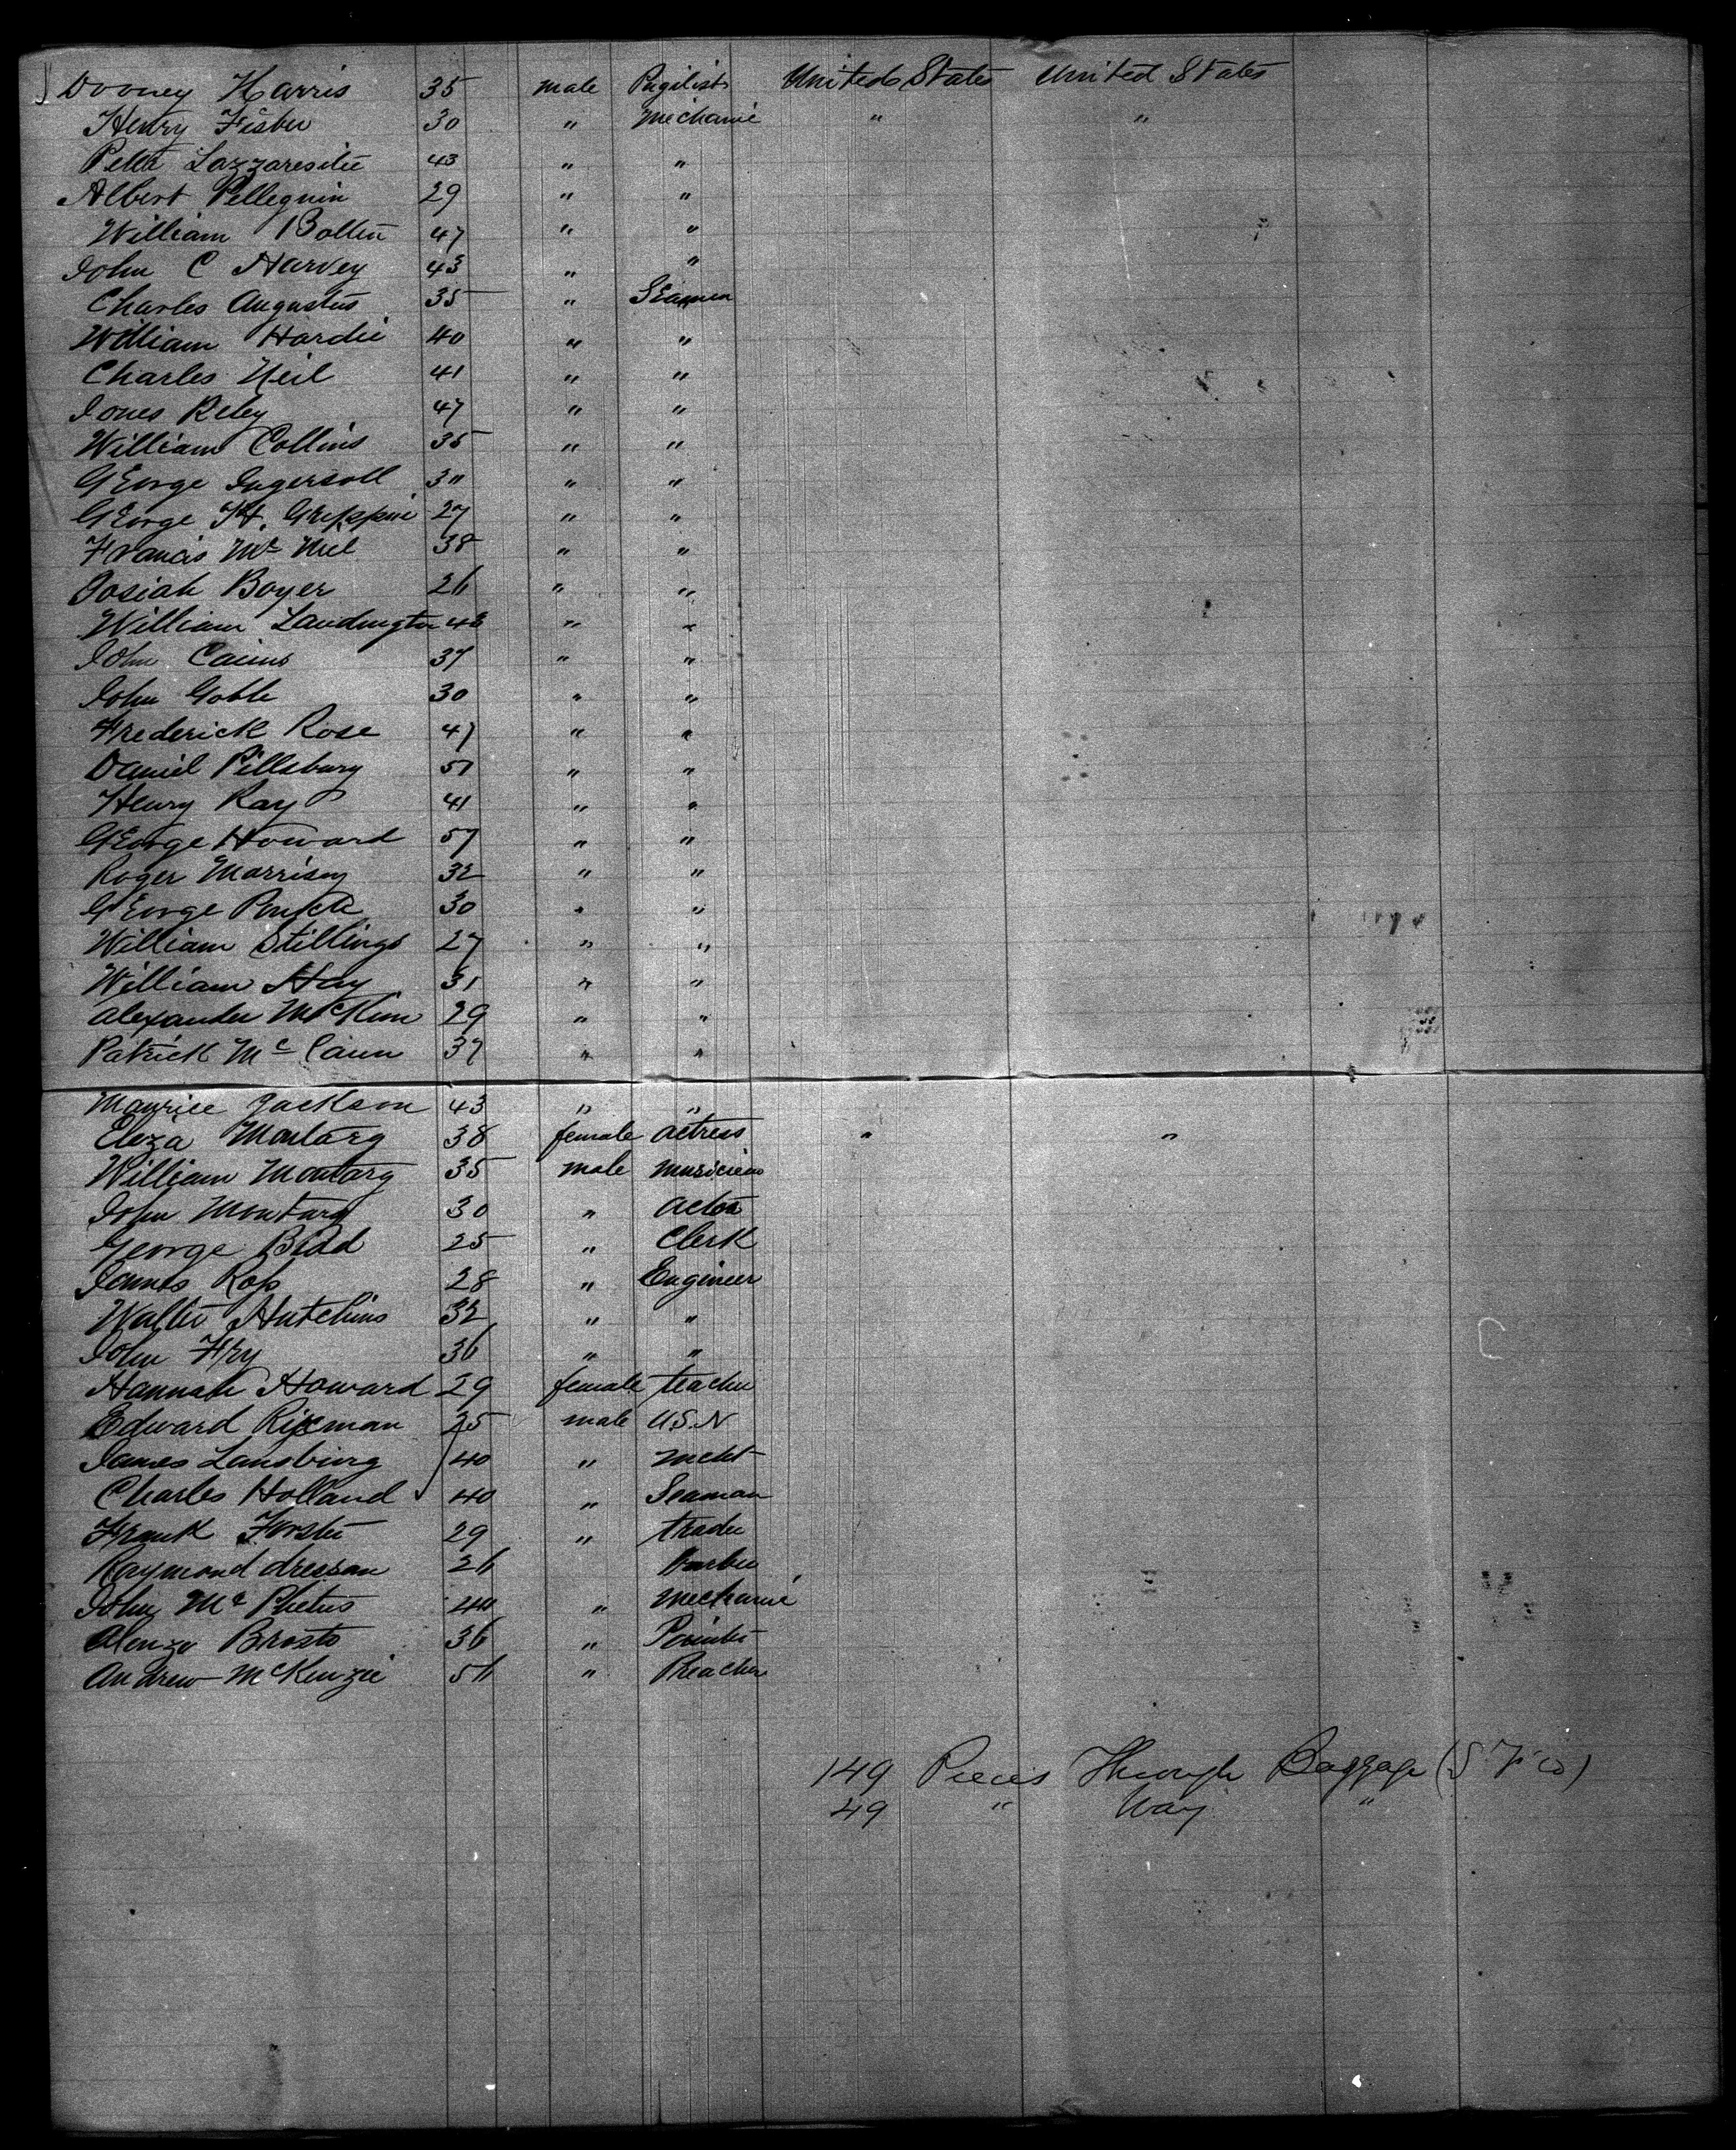 Dooney Harris 35 male Pugilist United States United States
Henry Fisher 30 " Mechanic " "
Peter 43 " "
Albert Pellequin 29 " "
William Bolten 47 " "
John C Harvey 43 " "
Charles Augustus 35 " Seamen
William Hardie 40 " "
Charles Neil 41 " "
Jones Reley 47 " "
William Collins 35 " "
George Ingersoll 30 " "
George H. 27 " "
Francis Mc Niel 38 " "
Josiah Boyer 26 " "
William Laudington 43 " "
John Cairns 37 " "
John Goble 30 " "
Frederick Rose 47 " "
Daniel Pillsbury 51 " "
Henry Ray 41 " "
George Howard 57 " "
Roger Morrisey 32 " "
George 30 " "
William Stillings 27 " "
William Hay 31 " "
Alexander McKim 29 " "
Patrick Mc Cann 37 " "
Maurice Jackson 43 " "
Eliza Montarg 38 female actress " "
William Montarg 35 male musician
John Montarg 30 " actor
George 25 " Clerk
James Ross 28 " Engineer
Walter Hutchins 32 " "
John Fry 36 " "
Hannah Howard 29 female teacher
Edward Rixman 25 male U.S.N
James Lansburg 40 " mcht
Charles Holland 40 " Seaman
Frank Forster 29 " trader
Raymond dressan 26 Barber
John Mc Phetus 40 " mechanic
Alonzo Brosts 36 " Painter
Andrew McKenzie 56 " Preacher
149 Pieces Through Baggage (S Fco)
49 " Way "